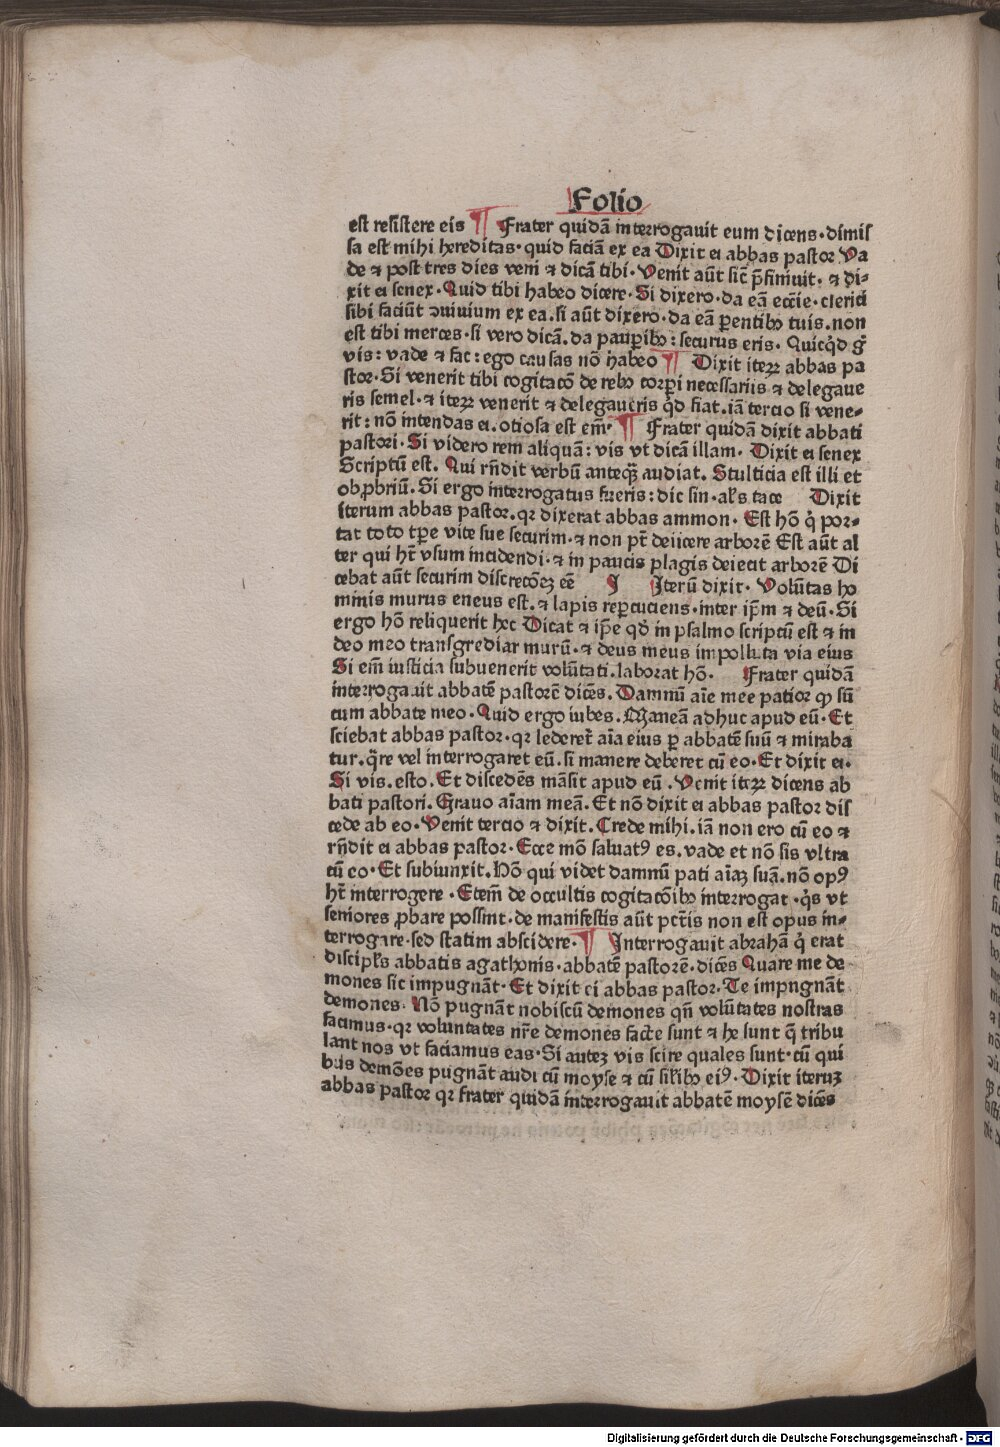 Folio
est resistere eis ¶ Frater quidā interrogauit eum dicens · dimis
sa est mihi hereditas · quid faciā ex ea Dixit ei abbas pastor Va
de ⁊ post tres dies veni ⁊ dicā tibi · Venit aūt sic̄ p̄finiuit · ⁊ di⸗
xit ei senex · Quid tibi habeo dicere · Si dixero · da eā eccīe · clerici
sibi faciūt ↄuiuium ex ea. si aūt dixero · da eā ꝑentibꝫ tuis. non
est tibi merces · si vero dicā. da pauꝑibꝫ : securus eris · Quicq̇d g̊
vis : vade ⁊ fac : ego causas nō habeo ¶ Dixit iteꝝ abbas pa
stor · Si venerit tibi cogitacō de rebꝫ corꝑi necessariis ⁊ delegaue
ris semel · ⁊ iteꝝ venerit ⁊ delegaueris q̇d fiat. iā tercio si vene⸗
rit : nō intendas ei. otiosa est em̄ · ¶ Frater quidā dixit abbati
pastori · Si videro rem aliquā : vis vt dicā illam · Dixit ei senex
Scriptū est. Qui rn̄dit verbū anteqꝫ audiat. Stulticia est illi et
obꝓbriū. Si ergo interrogatus fueris : dic sin · al's tace Dixit
iterum abbas pastor. qꝛ dixerat abbas ammon · Est hō q̇ por⸗
tat toto tꝑe vite sue securim · ⁊ non pt̄ deiicere arborē Est aūt al
ter qui hт̄ vsum incidendi · ⁊ in paucis plagis deiecit arborē Di
cebat aūt securim discretōeꝫ eē Iterū dixit · Volūtas ho
minis murus eneus est. ⁊ lapis reꝑcuciens · inter ip̄m ⁊ deū · Si
ergo hō reliquerit hec Dicat ⁊ ip̄e qđ in psalmo scriptū est ⁊ in
deo meo transgrediar murū · ⁊ deus meus impolluta via eius
Si em̄ iusticia subuenerit volūtati. laborat hō · Frater quidā
interrogauit abbatē pastorē dicēs. Damnū aīe mee patior ꝙ sū
cum abbate meo · Quid ergo iubes. Maneā adhuc apud eū · Et
sciebat abbas pastor · qꝛ lederet̄ aīa eius ꝑ abbatē suū ⁊ miraba
tur. q̄re vel interrogaret eū. si manere deberet cū eo · Et dixit ei ·
Si vis. esto. Et discedēs māsit apud eū. Venit iteꝝ dicens ab
bati pastori. Grauo aīam meā. Et nō dixit ei abbas pastor dis
cede ab eo · Venit tercio ⁊ dixit. Crede mihi. iā non ero cū eo ⁊
rn̄dit ei abbas pastor · Ecce mō saluatꝰ es. vade et nō sis vltra
cū eo · Et subiunxit. Nō qui videt damnū pati aīaꝫ suā. nō opꝰ
hт̄ interrogere · Etem̄ de occultis cogitacōibꝫ interrogat · q̇s vt
seniores ꝓbare possint · de manifestis aūt pct̄is non est opus in⸗
terrogare · sed statim abscidere · ¶ Interrogauit abrahā q̇ erat
discipl's abbatis agathonis · abbatē pastorē · dicēs Quare me de
mones sic impugnāt · Et dixit ei abbas pastor · Te impngnāt
demones · Nō pugnāt nobiscū demones qn̄ volūtates nostras
facimus · qꝛ voluntates nr̄e demones facte sunt ⁊ he sunt q̄ tribu
lant nos vt faciamus eas · Si auteꝫ vis scire quales sunt · cū qui
bus demōes pugnāt audi cū moyse ⁊ cū sil'ibꝫ eiꝰ · Dixit iteruꝫ
abbas pastor qꝛ frater quidā interrogauit abbatē moysē dicēs
Digitalisierung gefördert durch die Deutsche Forschungsgemeinschaft - DFG